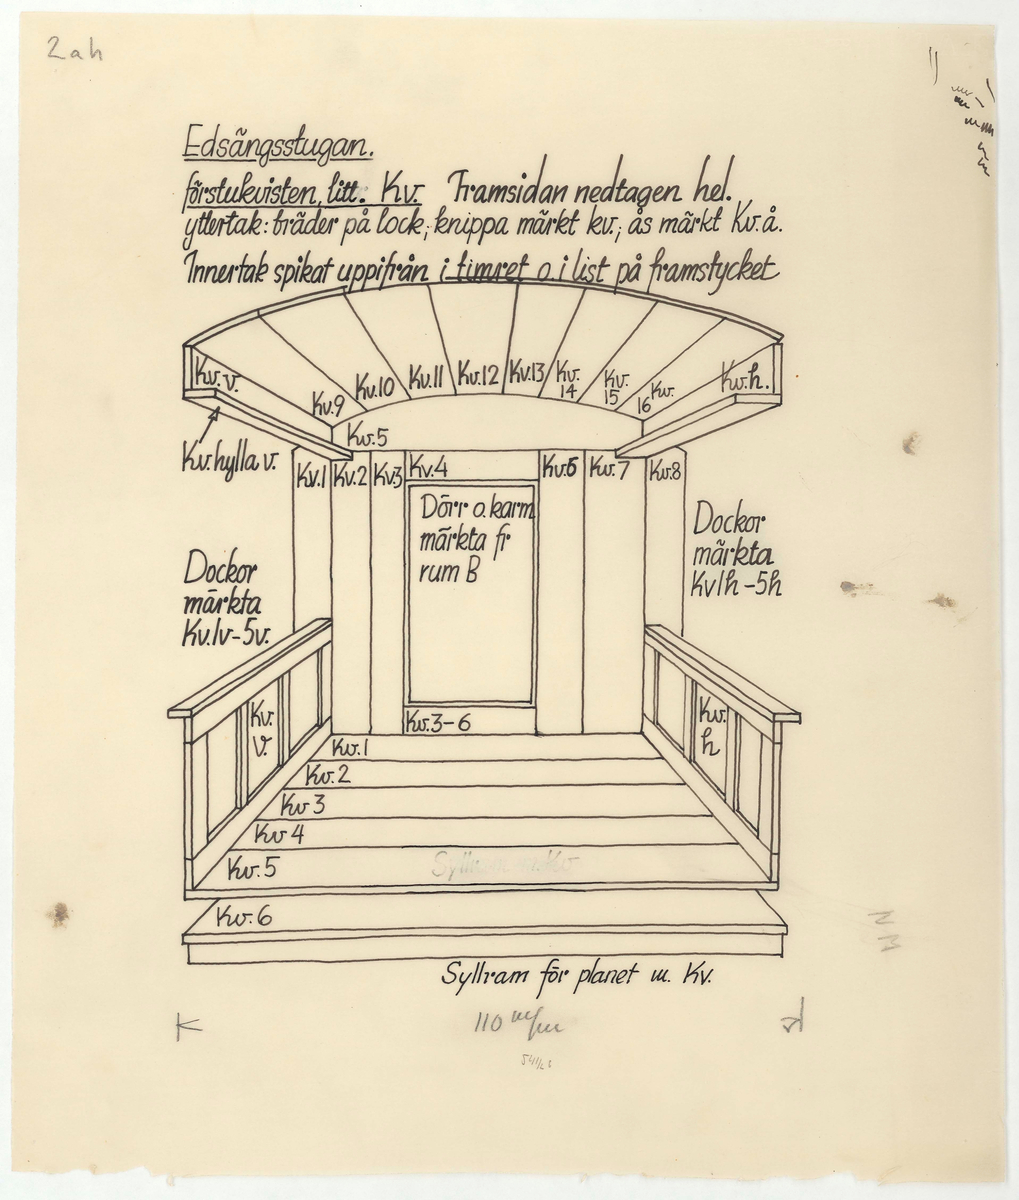 2 a h
Edsängsstugan.
förstukvisten, litt. Kv. Framsidan nedtagen hel.
yttertak: bräder på lock; knippa märkt kv.; ås märkt Kv.å.
Innertak spikat uppifrån i timret o i list på framstycket
Kv. v.
Kv.9
Kv.10
Kv.11
Kv.12
Kv.13
Kv.
14
Kv.
15
Kv.
16
Kv.h.
Kv.5
Kv.hylla v.
Kv.1
Kv.2
Kv.3
Kv.4
Kv.6
Kv.7
Kv.8
Dörr o. karm
märkta fr
rum B
Dockor
märkta
Kv.1v-5v.
Dockor
märkta
Kv1h-5h
Kv.
v.
Kv.
h
Kv.3-6
Kv.1
Kv.2
Kv 3
Kv 4
Kv.5
Syllram m. Kv
Kv.6
Syllram för planet m. Kv.
110 m/m